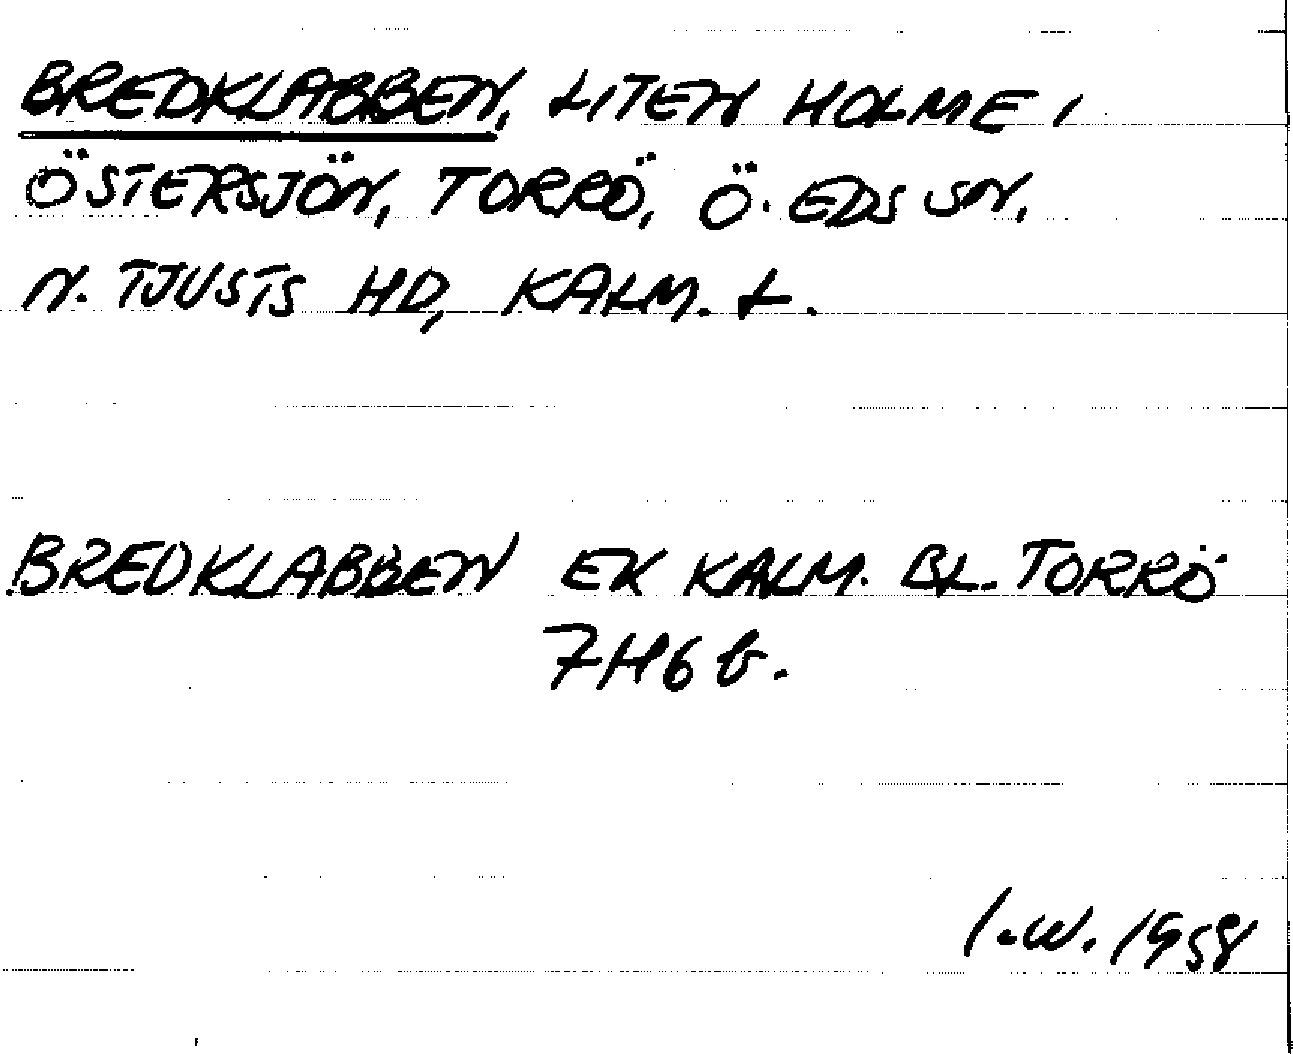 BREDKLABBEN, LITEN HOLME I
ÖSTERSJÖN, TORRÖ, Ö. EDS SN,
N. TJUSTS HD, KALM. L.
BREDKLABBEN EK KALM. BL. TORRÖ
7H6 b.
I.W. 1958